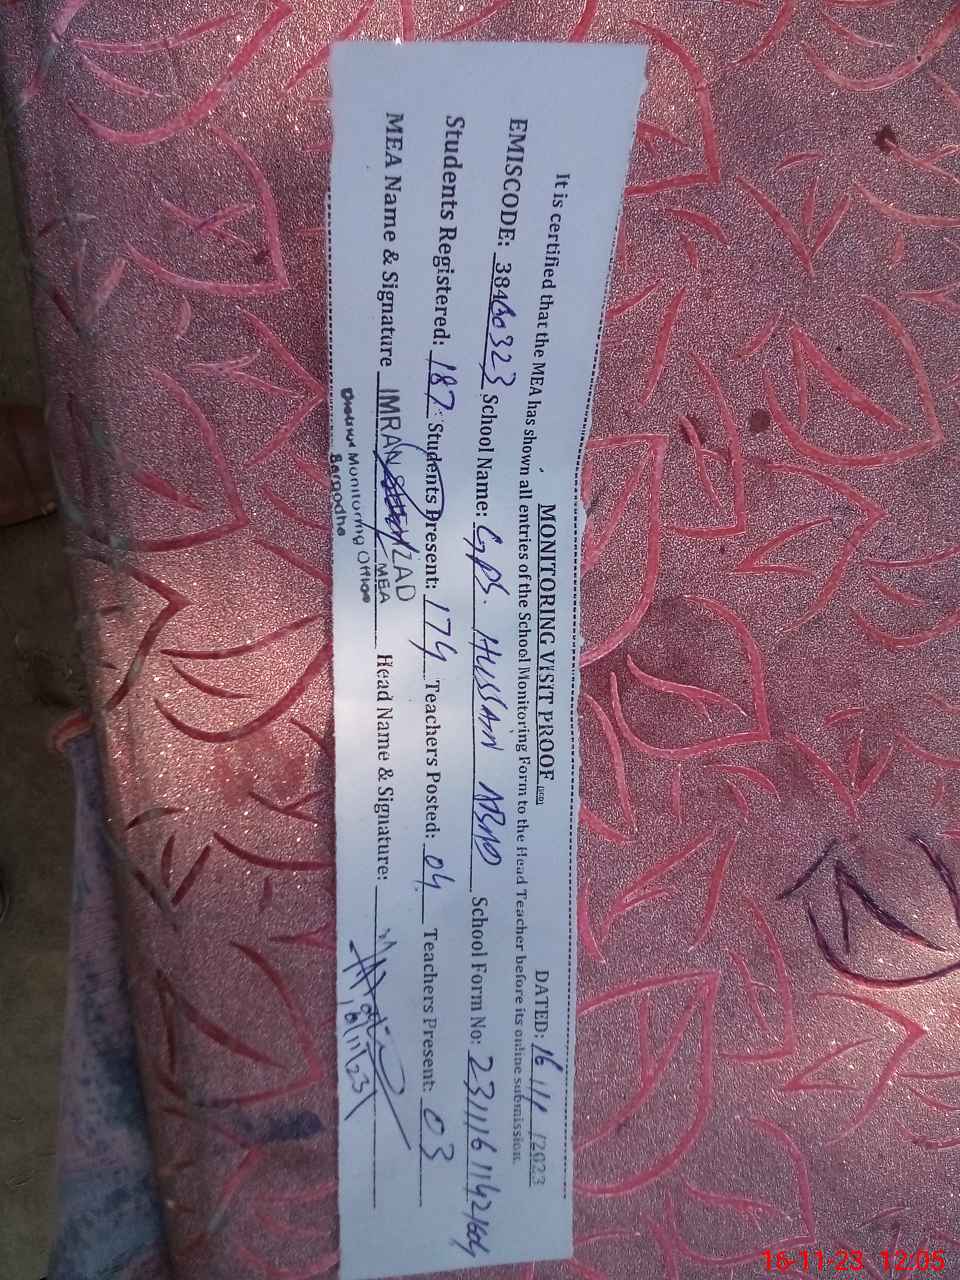 MONITORING VISIT PROOF DATED: 16/11/2023
It is certified that the MEA has shown all entries of the School Monitoring Form to the Head Teacher before its online submission.
EMISCODE: 38460323 School Name: GPS. HUSSAN ABAD School Form No: 23111611421604
Students Registered: 187 Students Present: 174 Teachers Posted: 04 Teachers Present: 03
MEA Name & Signature IMRAN SHEHZAD MEA Head Name & Signature:
16/11/23
District Monitoring Office
Sargodha
16-11-23 12:05